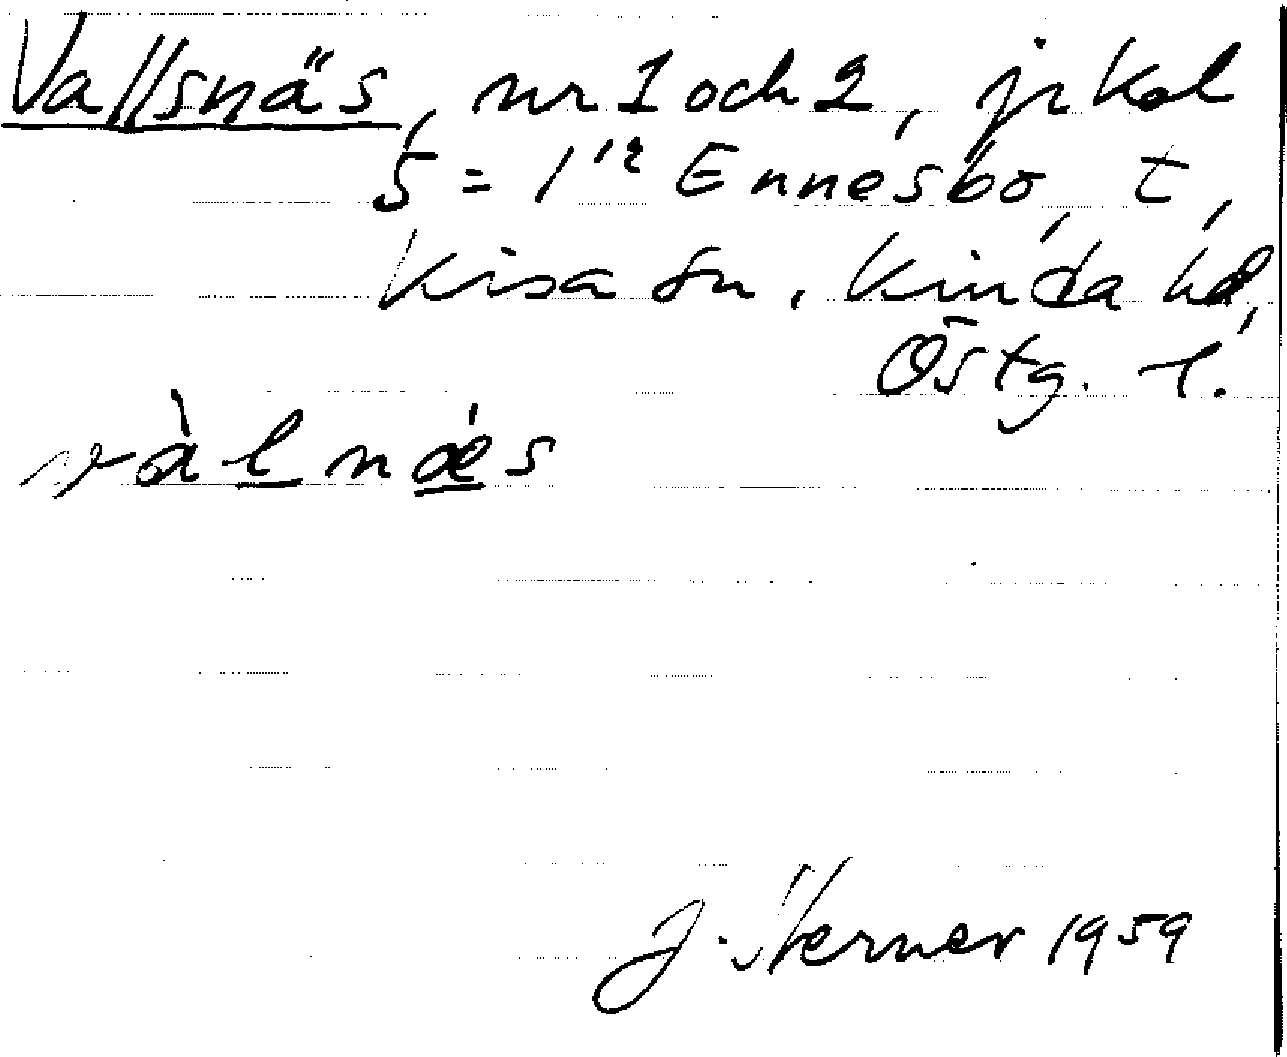 Vallsnäs, nr 1 och 2, jr kol
5 = 1/12 Ennesbo, t,
Kisa sn, Kinda hd,
Östg. l.
vàlnæs
J. Werner 1959